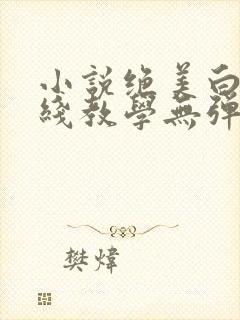 小說绝美白
綫教學無彈
樊煒